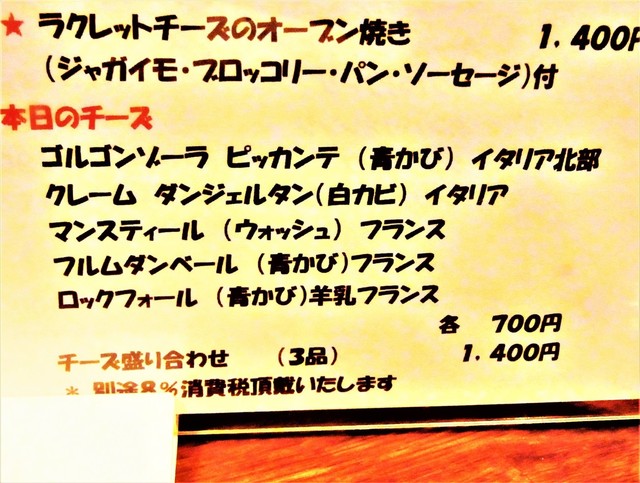 ★ ラクレットチーズのオーブン焼き 1,400円
（ジャガイモ・ブロッコリー・パン・ソーセージ）付
本日のチーズ
ゴルゴンゾーラ ピッカンテ （青かび） イタリア北部
クレーム ダンジェルタン（白カビ） イタリア
マンスティール （ウォッシュ） フランス
フルムダンベール （青かび）フランス
ロックフォール （青かび）羊乳フランス
各 700円
チーズ盛り合わせ （3品） 1,400円
* 別途8%消費税頂戴いたします